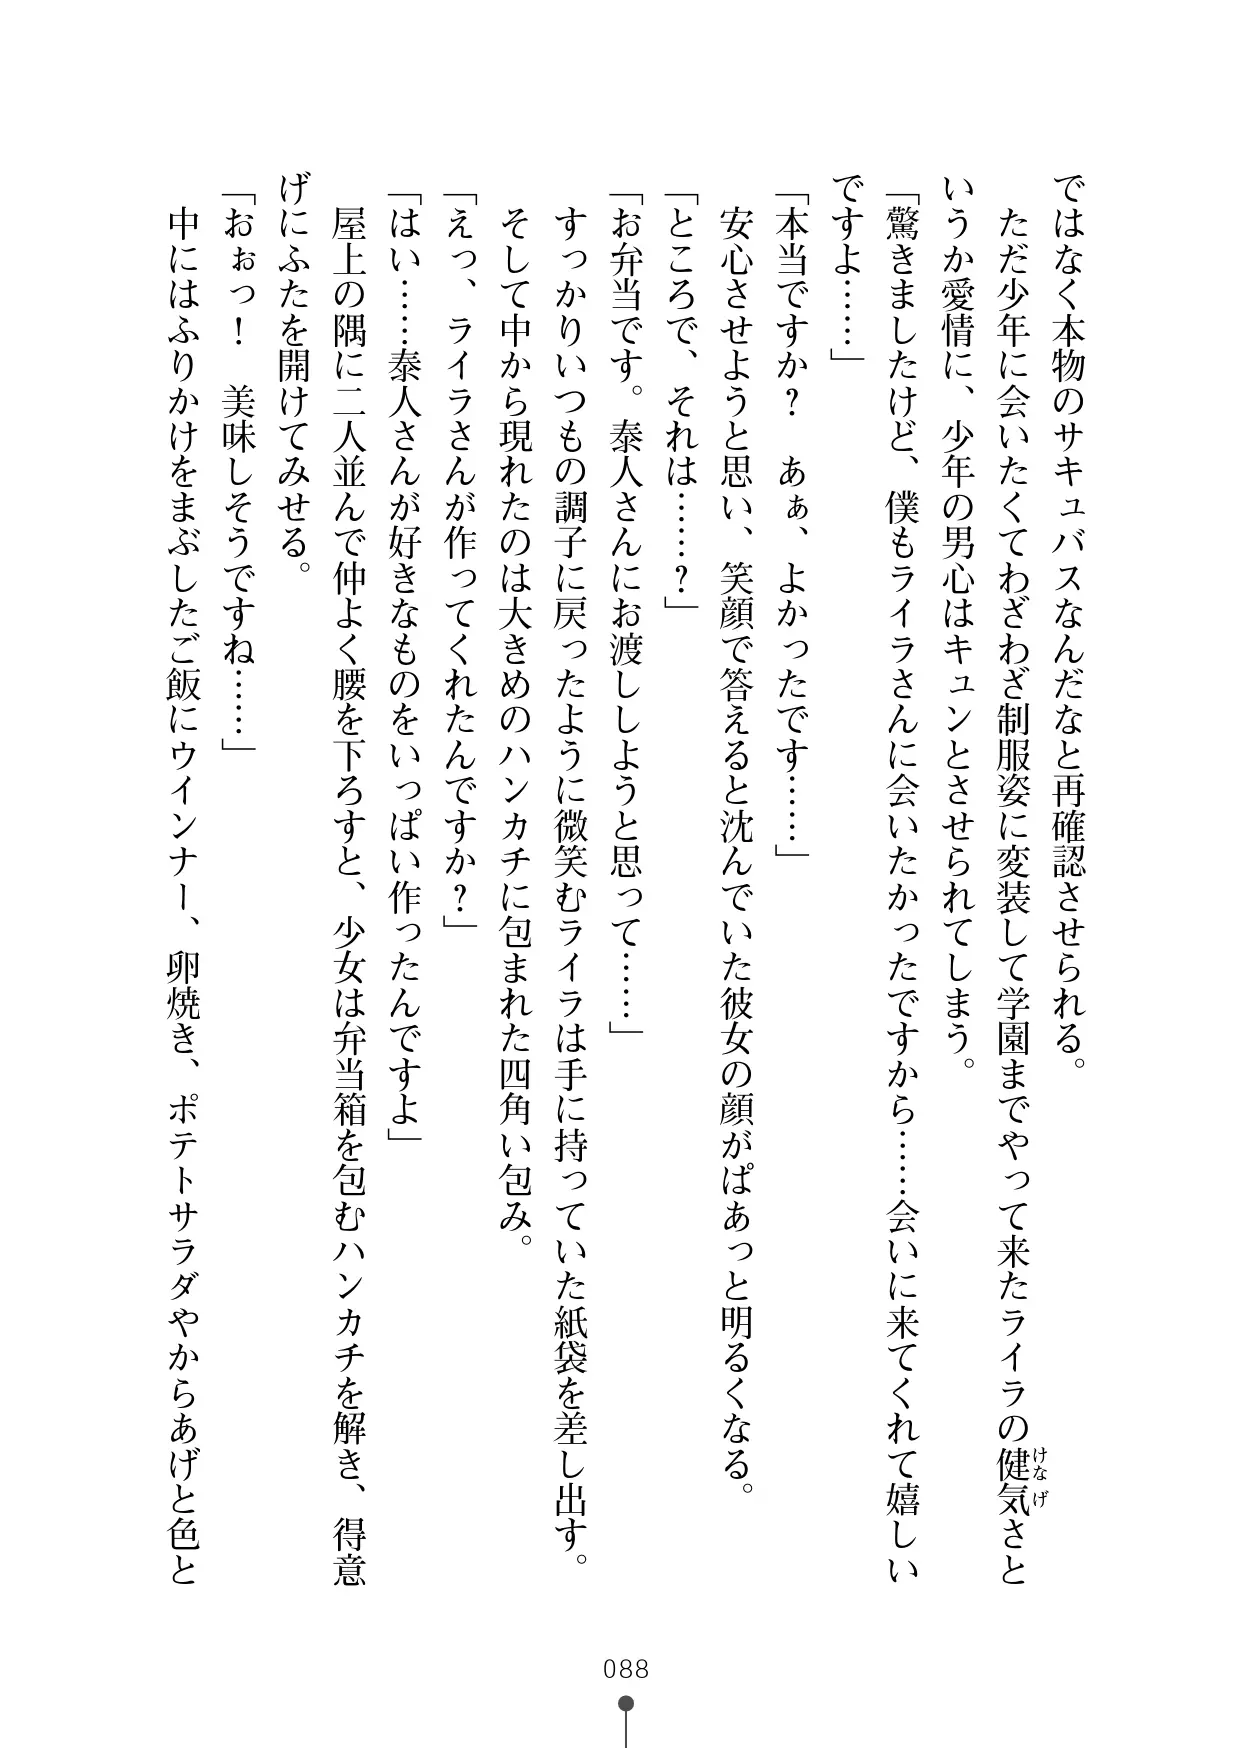 ではなく本物のサキュバスなんだなと再確認させられる。
ただ少年に会いたくてわざわざ制服姿に変装して学園までやって来たライラの健気さと
けなげ
いうか愛情に、少年の男心はキュンとさせられてしまう。
「驚きましたけど、僕もライラさんに会いたかったですから……会いに来てくれて嬉しい
ですよ……」
「本当ですか？　あぁ、よかったです……」
安心させようと思い、笑顔で答えると沈んでいた彼女の顔がぱあっと明るくなる。
「ところで、それは……？」
「お弁当です。泰人さんにお渡ししようと思って……」
すっかりいつもの調子に戻ったように微笑むライラは手に持っていた紙袋を差し出す。
そして中から現れたのは大きめのハンカチに包まれた四角い包み。
「えっ、ライラさんが作ってくれたんですか？」
「はい……泰人さんが好きなものをいっぱい作ったんですよ」
屋上の隅に二人並んで仲よく腰を下ろすと、少女は弁当箱を包むハンカチを解き、得意
げにふたを開けてみせる。
「おぉっ！　美味しそうですね……」
中にはふりかけをまぶしたご飯にウインナー、卵焼き、ポテトサラダやからあげと色と
088